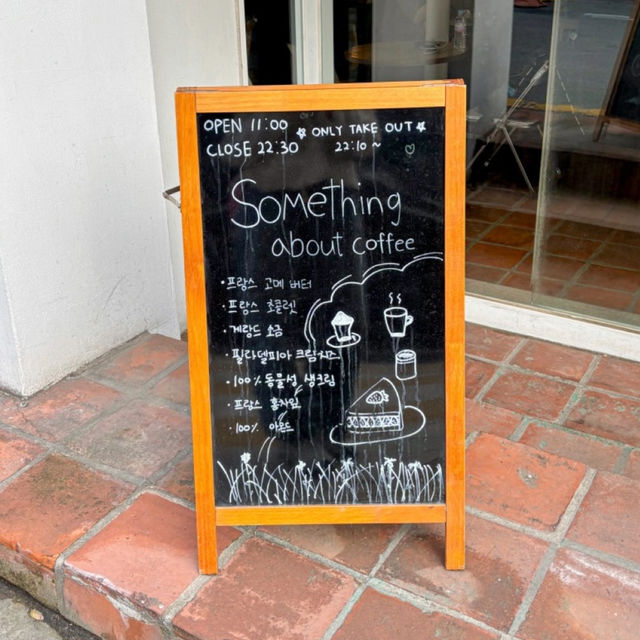 OPEN 11:00
CLOSE 22:30
ONLY TAKE OUT
22:10 ~
Something
about coffee
· 프랑스 고메 버터
· 프랑스 초콜렛
· 게랑드 소금
· 필라델피아 크림치즈
· 100% 동물성 생크림
· 프랑스 홍차잎
· 100% 아몬드